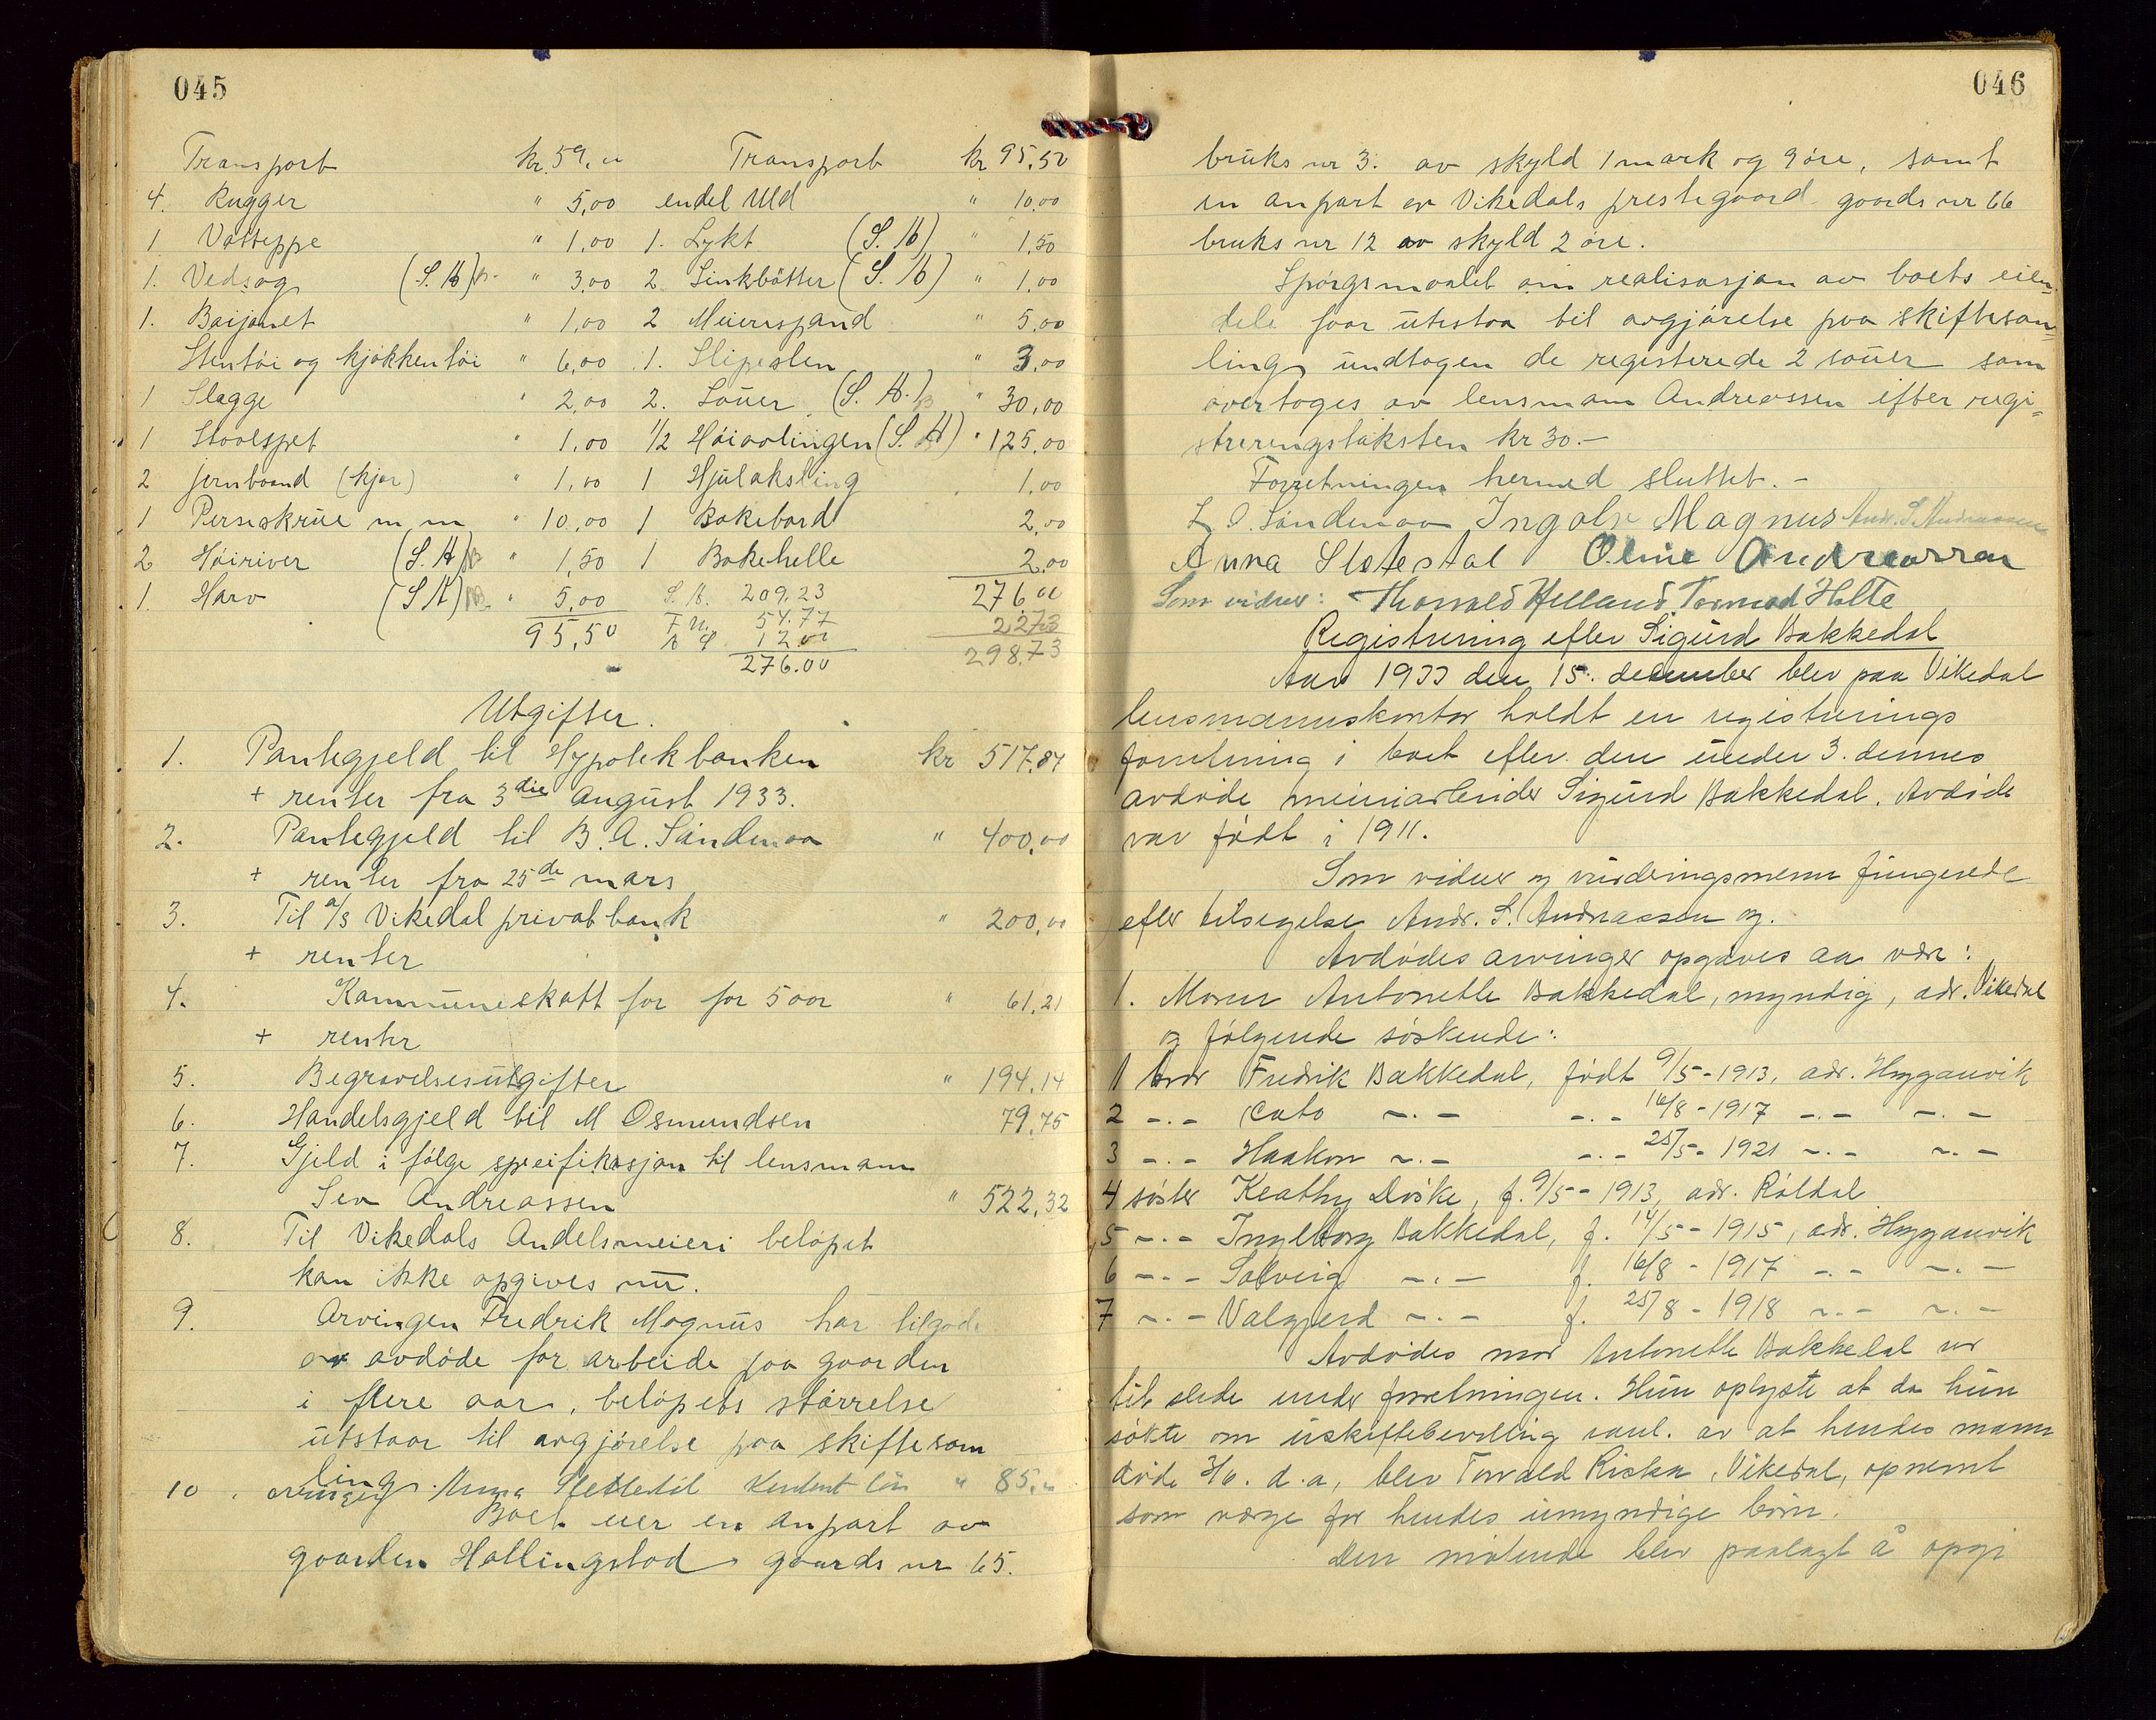 045
Transport kr. 59,00
4. Rugger " 5,00
1 Vatteppe " 1,00
1. Vedsag (S. H) " 3,00
1. Baijonet " 1,00
Stentöi og kjökkentöi " 6,00
1 Slegge " 2,00
1 Staalspet " 1,00
2 jernbaand (kjar) " 1,00
1 Perseskrue m m " 10,00
2 Höiriver (S. H) " 1,50
1. Harv (S H) " 5,00
95,50
Transport kr 95,50
endel Uld " 10,00
1. Lykt (S. H) " 1,50
2 Sinkbötter (S. H) " 1,00
2 Meierispand " 5,00
1. Slipesten " 3,00
2. Souer (S. H.) " 30,00
1/2 Höiavlingen (S. H) " 125,00
1 Hjulaksling 1,00
1 Bakebord 2,00
1 Bakehelle 2,00
276,00
2273
298,73
S. H. 209.23
54.77
12.00
276.00
Utgifter.
1. Pantegjeld til Hypotekbanken kr 517,84
+ renter fra 3die August 1933.
2. Pantegjeld til B. A. Sandmoa " 400,00
+ renter fra 25de mars
3. Til a/s Vikedal privatbank " 200,00
+ renter
4. Kommuneskatt for for 5 aar " 61,21
+ renter
5. Begravelsesutgifter " 194,14
6. Handelsgjeld til M Osmundsen 79,75
7. Gjeld i fölge spesifikasjon til lensmann
Sev Andreassen " 522,32
8. Til Vikedals Andelsmeieri belöpet
kan ikke opgives nu.
9. Arvingen Fredrik Magnus har tilgode
av avdöde for arbeide paa gaarden
i flere aar, belöpets störrelse
utstaar til avgjörelse paa skiftesam
ling
10. Anna " 85,00
Boet eier en anpart av
gaarden Hallingstad gaards nr 65.
046
bruks nr 3. av skyld 1 mark og 9 öre, samt
en anpart av Vikedals prestegaard gaards nr 66
bruks nr 12 av skyld 2 öre.
Spörgsmaalet om realisasjon av boets eien-
dele faar utestaa til avgjörelse paa skiftesam=
ling undtagen de registerede 2 souer som
overtoges av lensmann Andreassen efter regi=
streringstaksten kr 30.-
Forretningen hermed sluttet. -
L O. Sandmoa Ingolv Magnus Andr. S. Andreassen
Anna Sletestøl Oline Andreassen
Som vidner: Thorvald Helland Tormod Holte
Registrering efter Sigurd Bakkedal
Aar 1933 den 15. desember blev paa Vikedal
lensmannskontor holdt en registrerings
forretning i boet efter den under 3. dennes
avdöde meieriarbeider Sigurd Bakkedal. Avdöde
var födt i 1911.
Som vidner og vurderingsmenn fungerede
efter tilsigelse Andr. S. Andreassen og.
Avdödes arvinger opgaves aa være:
1. Moren Antonette Bakkedal, myndig, adr. Vikedal
og fölgende söskende:
1 bror Fredrik Bakkedal, födt 9/5-1913, adr. Hogganvik
2 -.- Cato -.- -.- 16/8-1917 -.- -.-
3 -.- Haakon -.- -.- 25/5-1921 -.- -.-
4 söster Keathy Döske, f. 9/5-1913, adr. Röldal
5 -.- Ingeborg Bakkedal, f. 14/5-1915, adr. Hogganvik
6 -.- Solveig -.- f. 16/8-1917 -.- -.-
7 -.- Valgjerd -.- f. 25/8-1918 -.- -.-
Avdödes mor Antonette Bakkedal var
til stede under forretningen. Hun oplyste at da hun
sökte om uskiftebevilling av at hendes mann
döde d.a, blev Torvald Riska, Vikedal, opnevnt
som verge for hendes umyndige börn.
Den mötende blev paalagt å opgi